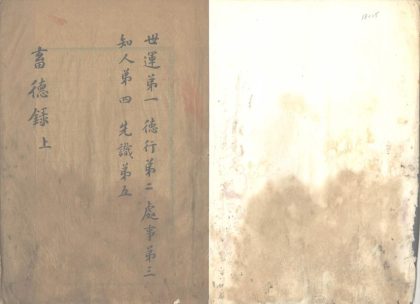 世運第一 德行第二 處事第三
知人第四 先識第五
畜德錄 上